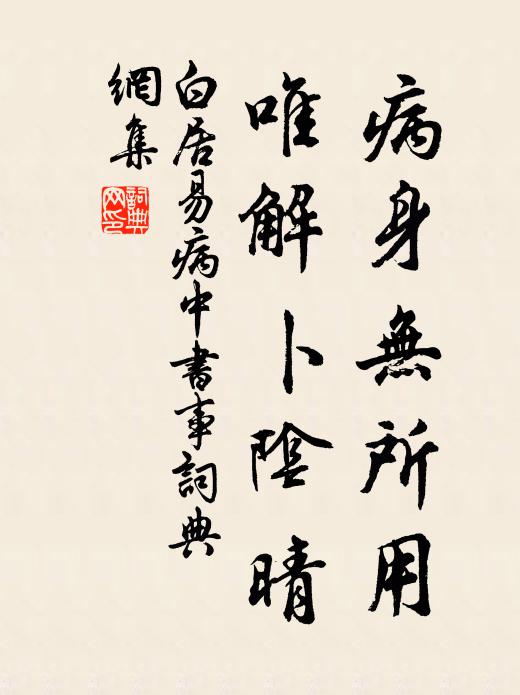 病身無所用
唯解卜陰晴
白居易病中書事詞典
網集
詞典
网印